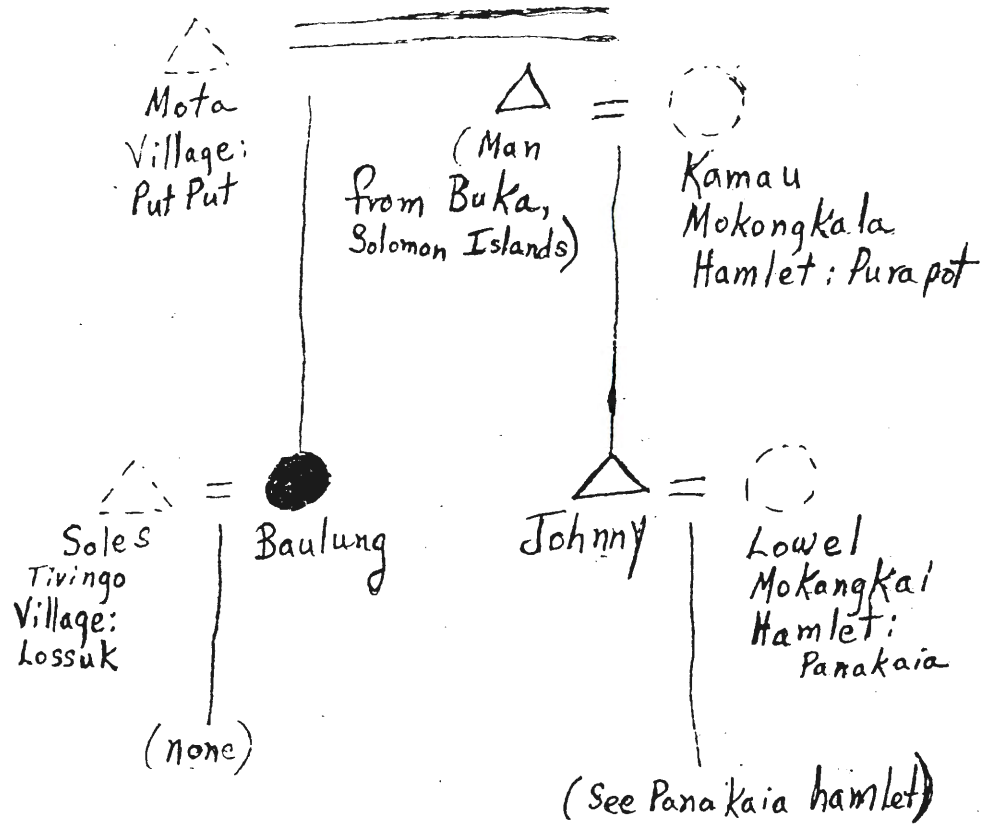 Mota
Village:
Put Put
(Man
from Buka,
Solomon Islands)
Kamau
Mokongkala
Hamlet: Purapot
Soles
Tivingo
Village:
Lossuk
Baulung
Johnny
Lowel
Mokangkai
Hamlet:
Panakaia
(none)
(See Panakaia hamlet)